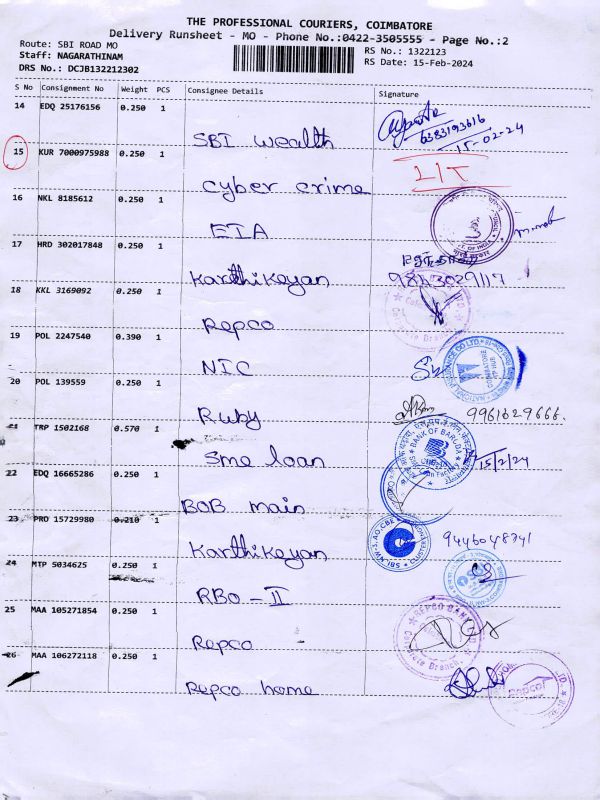 THE PROFESSIONAL COURIERS, COIMBATORE
Delivery Runsheet - MO - Phone No.:0422-3505555 - Page No.:2
Route: SBI ROAD MO
RS No.: 1322123
Staff: NAGARATHINAM
RS Date: 15-Feb-2024
DRS No.: DCJB132212302
S No Consignment No Weight PCS Consignee Details Signature
14 EDQ 25176156 0.250 1
SBI wealth
6383193616
15-02-24
15 KUR 7000975988 0.250 1
Cyber crime
16 NKL 8185612 0.250 1
EIA
17 HRD 302017848 0.250 1
Karthikeyan
18 KKL 3169092 0.250 1
Repco
19 POL 2247540 0.390 1
NIC
20 POL 139559 0.250 1
Ruby
9961629666.
21 TRP 1502168 0.570 1
Sme loan
BANK OF BARODA
15/2/24
22 EDQ 16665286 0.250 1
BOB main
23 PRO 15729980 0.210 1
Karthikeyan
9446048741
24 MTP 5034625 0.250 1
RBO - II
25 MAA 105271854 0.250 1
Repco
REPCO BANK
26 MAA 106272118 0.250 1
Repco home